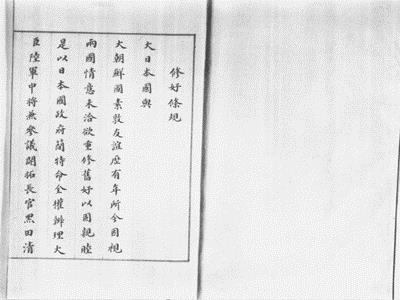 修好條規
大日本國與
大朝鮮國素敦友誼歷有年所今因視
兩國情意未洽欲重修舊好以固親睦
是以日本國政府簡特命全權辦理大
臣陸軍中將兼參議開拓長官黑田清